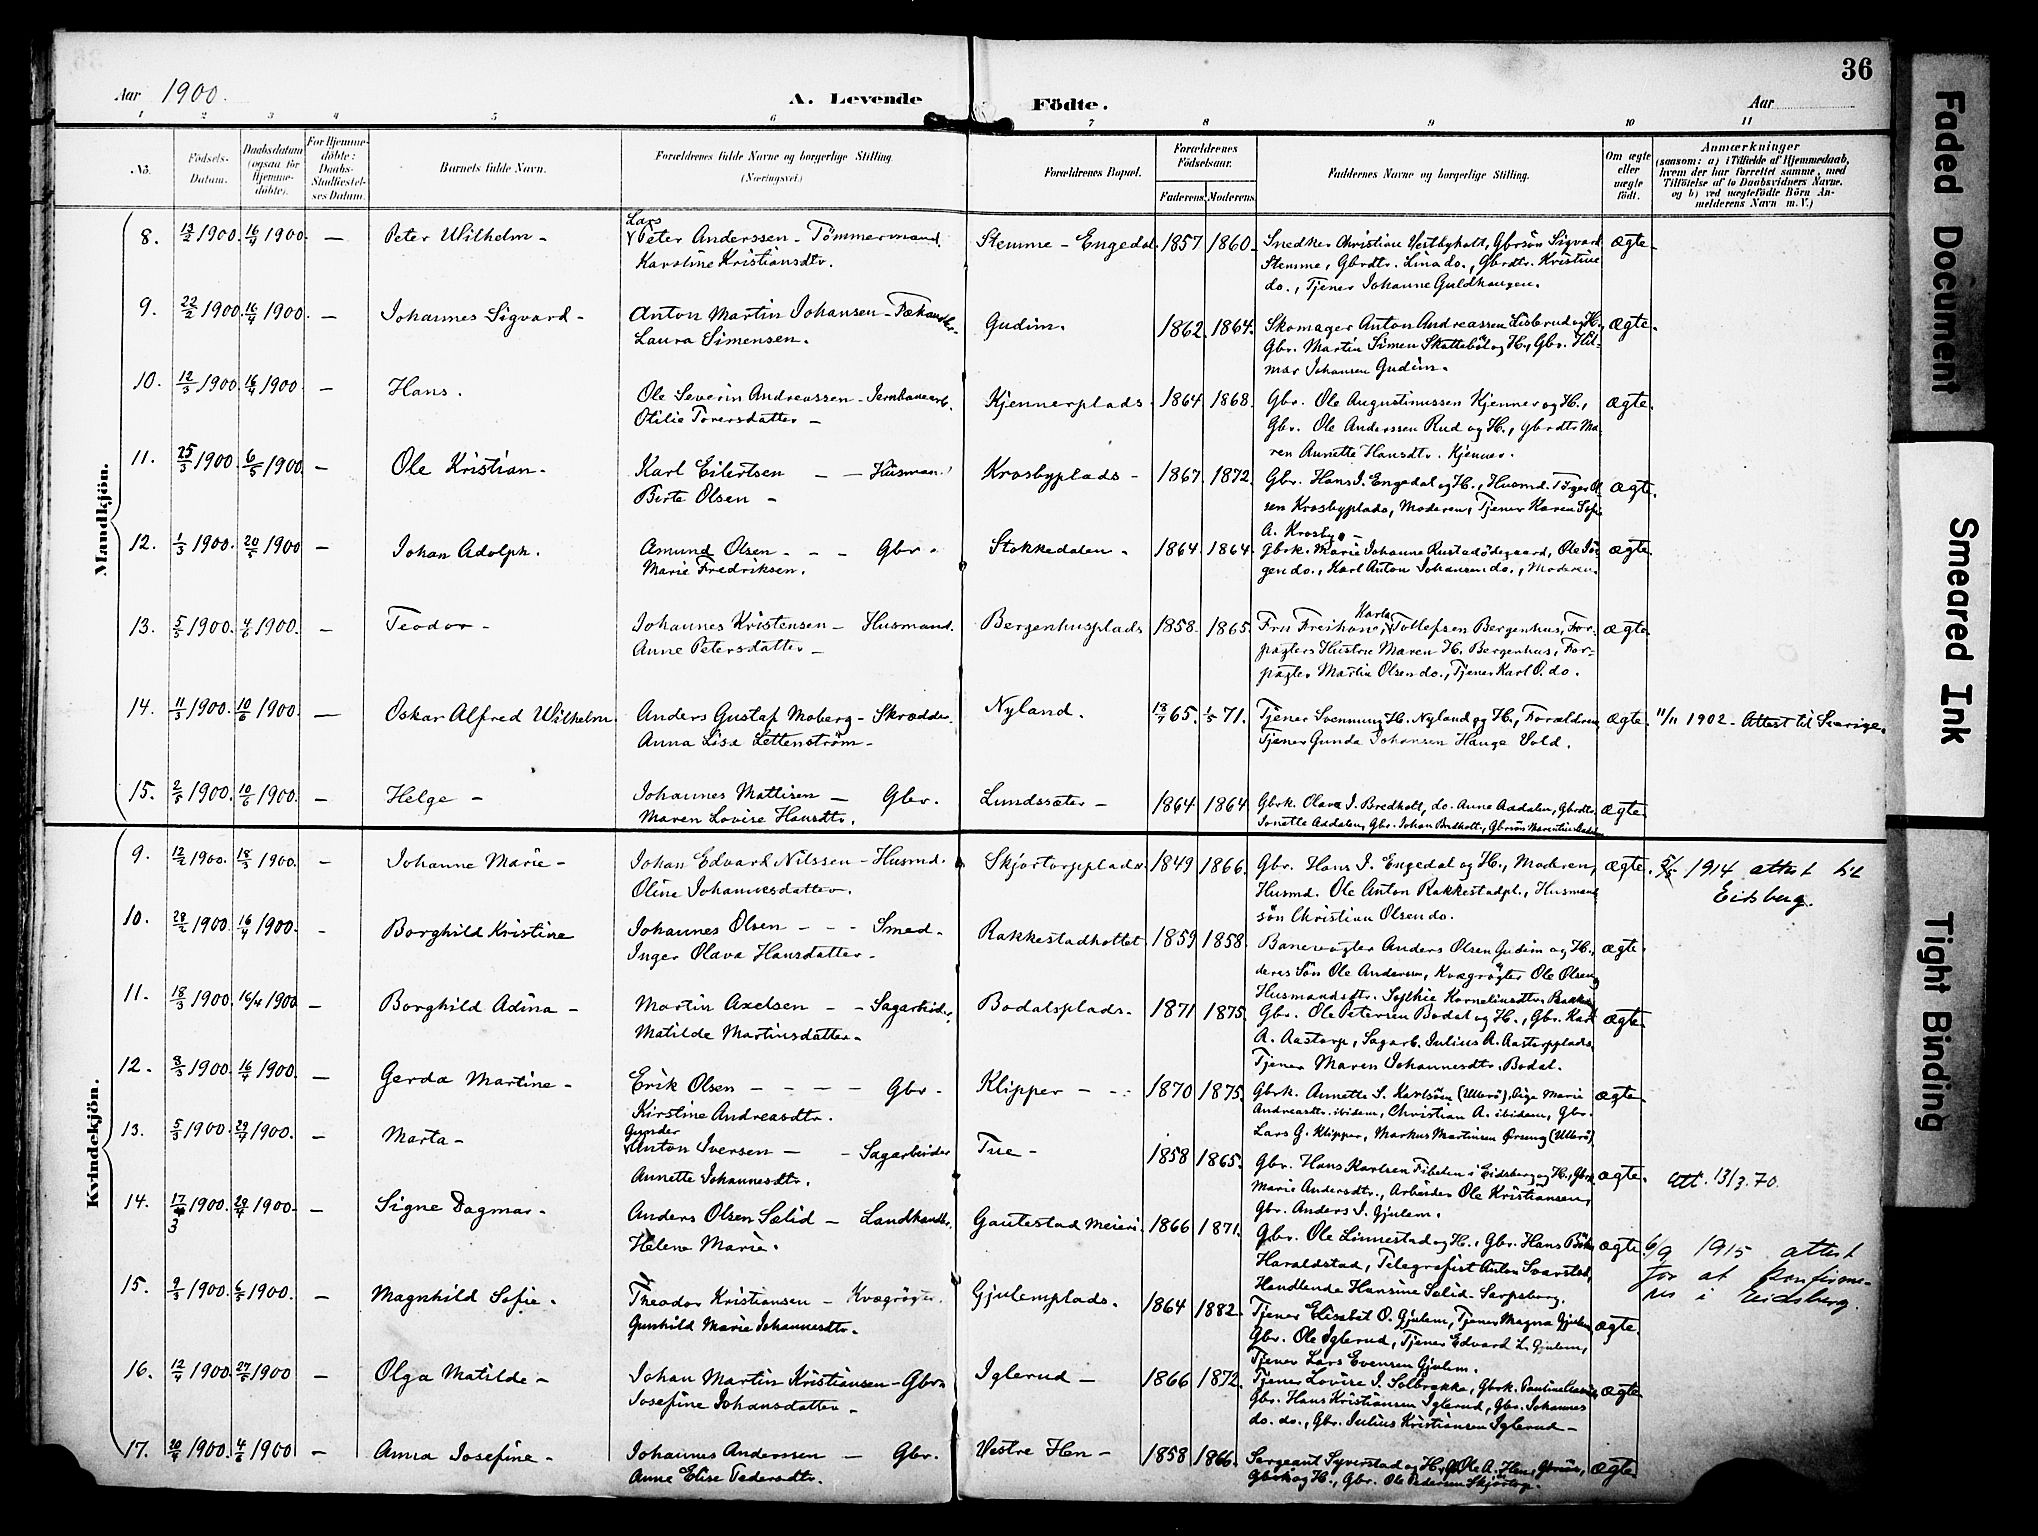 36
Aar 1900.
A. Levende
Födte.
Aar
1 2 3 4 5 6 7 8 9 10 11
No.
Födsels-Datum.
Daabsdatum (ogsaa for Hjemmedöbte).
For Hjemmedöbte: Daabs-Stadfæstelses Datum.
Barnets fulde Navn.
Forældrenes fulde Navne og borgerlige Stilling. (Næringsvei.)
Forældrenes Bopæl.
Forældrenes Födselsaar.
Faderens. Moderens.
Faddernes Navne og borgerlige Stilling.
Om ægte eller uægte födt.
Anmærkninger
(saasom: a) i Tilfælde af Hjemmedaab, hvem der har forrettet samme, med Tilföielse af to Daabsvidners Navne, og b) ved uægtefödte Börn Anmelderens Navn m. V.)
Mandkjön.
8. 13/2 1900. 16/4 1900. — Peter Wilhelm - Lars Peter Anderssen - Tömmermand. Stemme - Engedal 1857 1860. Snedker Christian Vestbyholt, Gbrsön Sigvard ægte.
Karoline Kristiansdtr. Stemme, Gbrdtr. Lina do., Gbrdtr. Kristine
do., Tjener Johanne Guldhaugen.
9. 22/2 1900. 16/4 1900. — Johannes Sigvard - Anton Martin Johansen - Gudim. 1862. 1864. Skomager Anton Andreassen og H., ægte.
Laura Simensen. Gbr. Martin Simen Skatteböl og H., Gbr. Hil-
mar Johansen Gudim.
10. 12/3 1900. 16/4 1900 — Hans. Ole Severin Andreassen - Jernbanearb. Kjennerplads. 1864 1868. Gbr. Ole Augustinussen Kjenner og H., ægte.
Otilie Torersdatter - Gbr. Ole Anderssen Rud og H., gbrdtr Ma-
ren Annette Hansdtr. Kjenner.
11. 25/3 1900. 6/5 1900. — Ole Kristian - Karl Eilertsen - - Husman. Krosbyplads - 1867. 1872. Gbr. Hans J. Engedal og H., Husmd. ægte.
Berte Olsen - sen Krosbyplads, Moderen, Tjener Karen Sofie
A. Krosby -
12. 1/3 1900. 20/5 1900 — Johan Adolph. Amund Olsen - - - Gbr. Stokkedalen - 1864. 1864. Gbrk. Marie Johanne Rustadödegaard, Ole Jör- ægte.
Marie Fredriksen. gen do., Karl Anton Johansen do., Moderen.
13. 5/5 1900. 4/6 1900. — Teodor - Johannes Kristensen - Husmand. Bergenhusplads 1858. 1865. Fru Karla Tollefsen Bergenhus, For- ægte.
Anne Petersdatter - pagters Hustru Maren H. Bergenhus, For-
pagter Martin Olsen do., Tjener Karl O. do.
14. 11/3 1900. 10/6 1900. — Oskar Alfred Wilhelm. Anders Gustaf Moberg - Skrædder. Nyland. 65. 1/5 71. Tjener Svennung H. Nyland og H., Forældrene, ægte. 11/11 1902 - Attest til Sverige.
Anna Lisa Lettenström - Tjener Gunda Johansen Hauge Vold.
15. 2/5 1900. 10/6 1900. — Helge - Johannes Mattisen - Gbr. Lundssæter - 1864 1864 Gbrk. Olava J. Bredholt, do. Anne Aadalen, Gbrdtr. ægte.
Maren Lovise Hansdtr. Jonette Aadalen, Gbr. Johan Bredholt, Gbrsön
Kvindekjön.
9. 12/2 1900. 18/3 1900. - Johanne Marie - Johan Edvard Nilssen - Husmd. Skjörtorpplads. 1849 1866. Gbr. Hans J. Engedal og H., Moderen, ægte. 5/5 1914 attest til
Oline Johannesdatter. Husmd. Ole Anton Rakkestadpl., Husmands Eidsberg.
sön Christian Olsen do.
10. 28/2 1900. 16/4 1900. - Borghild Kristine Johannes Olsen - - - Smed. Rakkestadholtet. 1859 1858. Banevogter Anders Olsen Gudim og H., ægte.
Inger Olava Hansdatter - deres Sön Ole Andersen, Kvægrögter Ole Olsen,
Husmandsdtr. Sophie Kornelinsdtr.
11. 18/3 1900. 16/4 1900 - Borghild Adina - Martin Axelsen - - Sagarbeider. Bodalsplads. 1871 1875. Gbr. Ole Petersen Bodal og H., Gbr. Karl ægte.
Matilde Martinsdatter - A. Aastorp, Sagarb. Julius A. Aastorpplads,
Tjener Maren Johannesdtr. Bodal.
12. 8/3 1900. 16/4 1900. - Gerda Martine - Erik Olsen - - - - Gbr. Klipper - - 1870 1875. Gbrk. Annette S. Karlsön (Ullerö), Pige Marie ægte.
Kirstine Andreasdtr. Andreasdtr. ibidem, Christian A. ibidem, Gbr.
Lars G. Klipper, Markus Martinsen (Ullerö)
13. 5/3 1900. 29/4 1900. - Marta - Gunder Anton Iversen - - Sagarbeider Tue - 1858 1865. Gbr. Hans Karlsen i Eidsberg og H., Gbrk ægte. att. 13/3.70.
Annette Johannesdtr. Marie Andersdtr., Arbeider Ole Kristiansen,
Gbr. Anders J. Gjulem.
14. 17/3 1900. 29/4 1900. - Signe Dagmar - Anders Olsen Sælid - Landhandl. Gautestad Meieri. 1866 1871. Gbr. Ole Linnestad og H., Gbr. Hans ægte. 6/9 1915 attest
Helene Marie. Haraldstad, Telegrafist Anton Svarstad, for at konfirme-
Handlende Hansine Sælid Sarpsborg. res i Eidsberg.
15. 9/3 1900. 6/5 1900. - Magnhild Sofie. Theodor Kristiansen - Kvægrögter. Gjulemplads. 1864 1882. Tjener Elisabet O. Gjulem, Tjener Magna Gjulem, ægte.
Gunhild Marie Johannesdtr. Gbr. Ole Iglerud, Tjener Edvard L. Gjulem,
Tjener Lars Evensen Gjulem.
16. 12/4 1900. 27/5 1900 - Olga Matilde - Johan Martin Kristiansen - Gbr. Iglerud - 1866 1872. Tjener Lovise J. Solbrække, Gbrk. Pauline ægte
Josefine Johansdatter - Gbr. Hans Kristiansen Iglerud, Gbr. Johannes
do. do., Gbr. Julius Kristiansen Iglerud -
17. 20/4 1900. 4/6 1900 - Anna Josefine - Johannes Anderssen - Gbr. Vestre Hen - 1858 1866. Sergeant Syverstad og H., Ole A. Hen, ægte
Anne Elise Pedersdtr. og H., Gbr. Ole Pedersen Skjörtorp.
Faded Document
Smeared Ink
Tight Binding